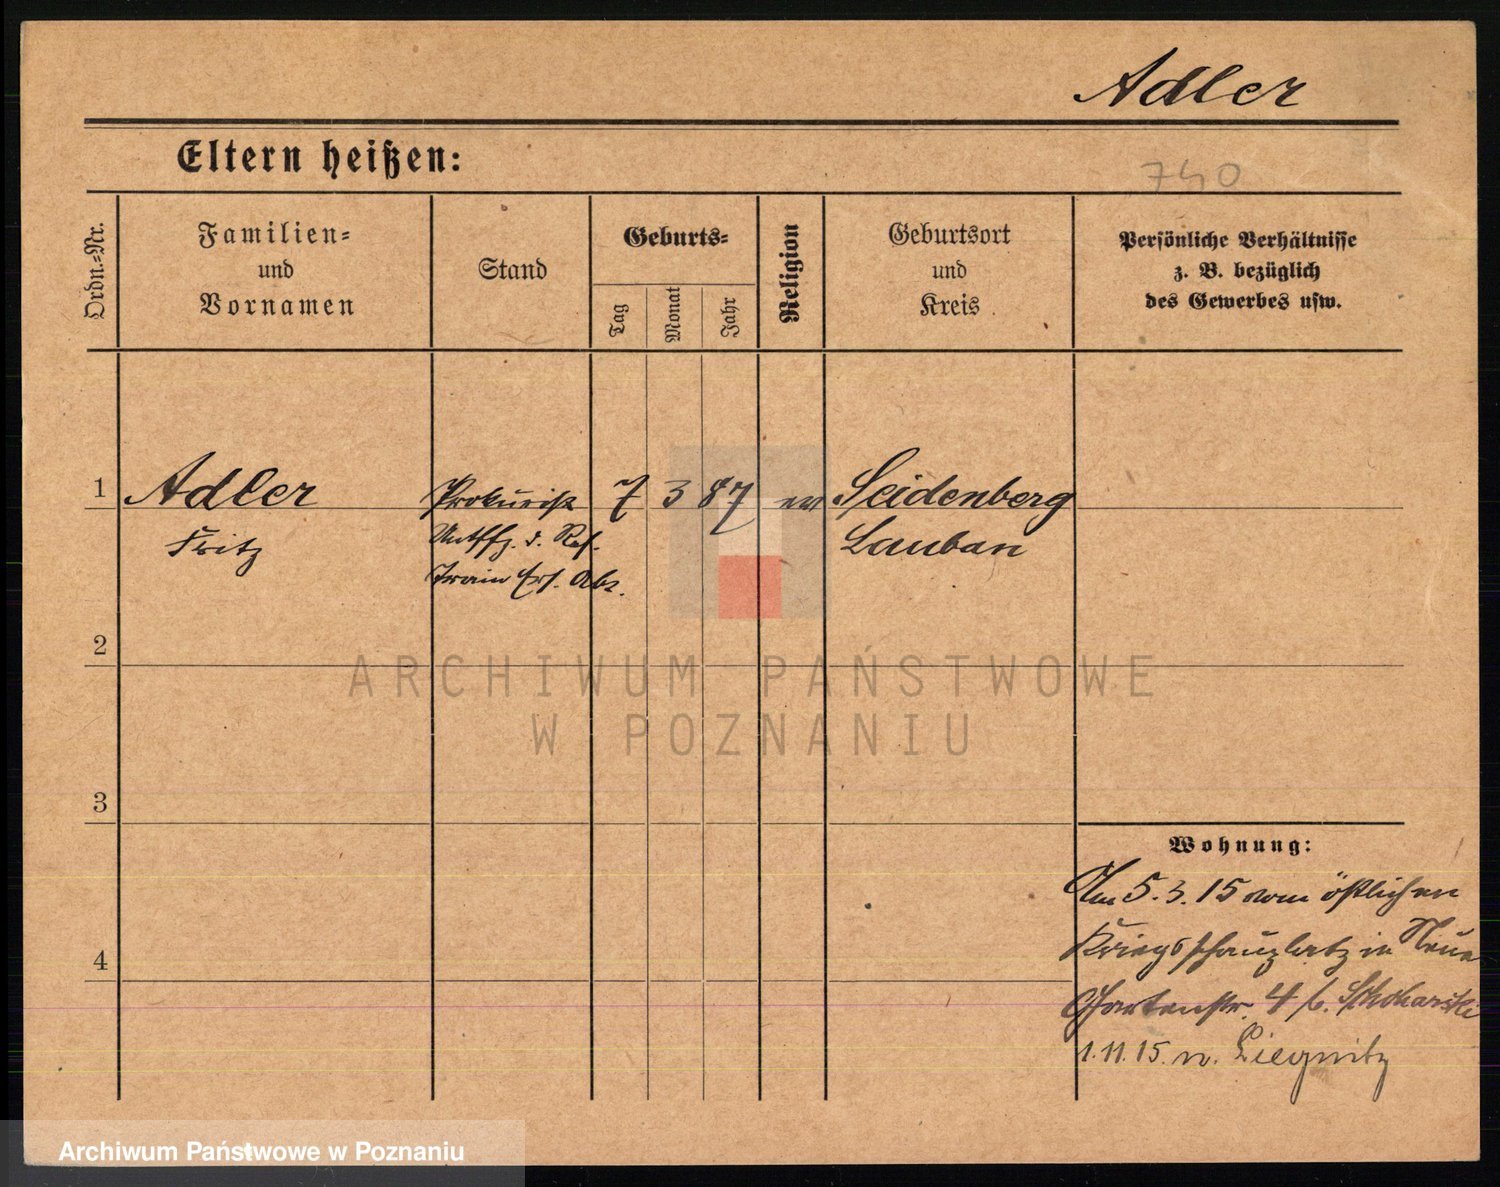 Adler
Eltern heißen:
740
Ordn.-Nr.
Familien-
und
Vornamen
Stand
Geburts-
Tag
Monat
Jahr
Religion
Geburtsort
und
Kreis
Persönliche Verhältnisse
z. B. bezüglich
des Gewerbes usw.
1 Adler Prokurist 7 3 87 ev Seidenberg
Fritz Untffz. d. Res. Lauban
Train Ers. Abt.
2
3
4
Wohnung:
Am 5.3.15 vom östlichen
Kriegsschauplatz in Neue
Gartenstr. 4 b.
1.11.15. n. Liegnitz
ARCHIWUM PAŃSTWOWE
W POZNANIU
Archiwum Państwowe w Poznaniu